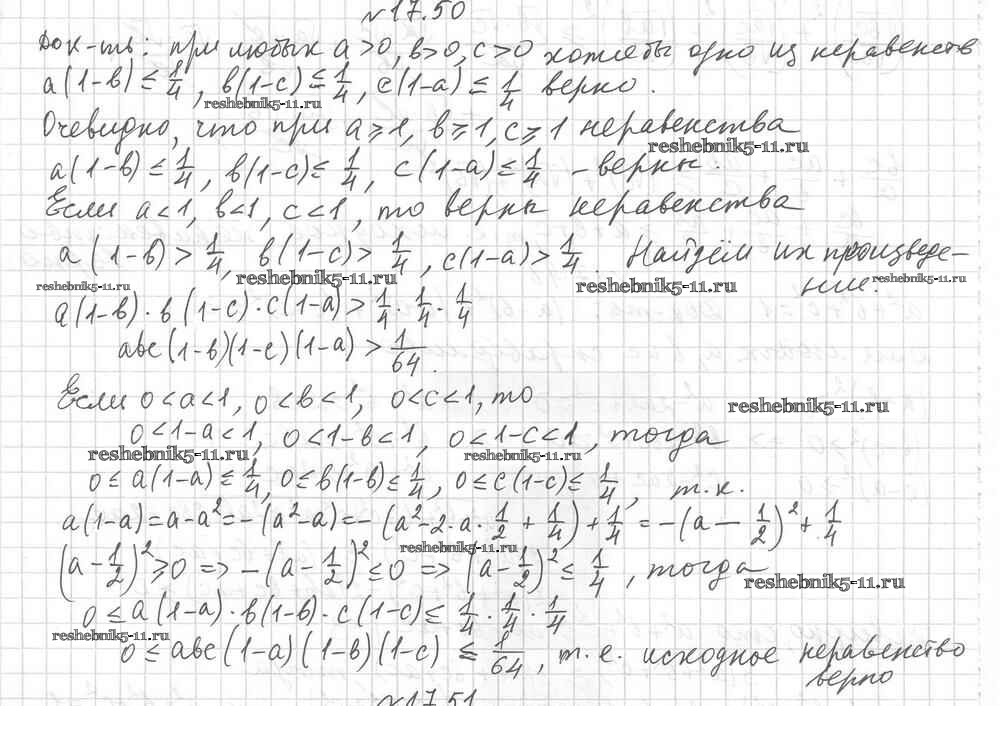 №17.50
Док-ть: при любых a>0, b>0, c>0 хотя бы одно из неравенств
a(1-b) ≤ 1/4, b(1-c) ≤ 1/4, c(1-a) ≤ 1/4 верно.
reshebnik5-11.ru
Очевидно, что при a⩾1, b⩾1, c⩾1 неравенства
reshebnik5-11.ru
a(1-b) ≤ 1/4, b(1-c) ≤ 1/4, c(1-a) ≤ 1/4 - верны.
Если a<1, b<1, c<1, то верны неравенства
a(1-b) > 1/4, b(1-c) > 1/4, c(1-a) > 1/4. Найдём их произведе-
ние.
reshebnik5-11.ru reshebnik5-11.ru reshebnik5-11.ru reshebnik5-11.ru
a(1-b)·b(1-c)·c(1-a) > 1/4 · 1/4 · 1/4
abc(1-b)(1-c)(1-a) > 1/64.
Если 0<a<1, 0<b<1, 0<c<1, то
reshebnik5-11.ru
0<1-a<1, 0<1-b<1, 0<1-c<1, тогда
reshebnik5-11.ru reshebnik5-11.ru
0≤a(1-a)≤1/4, 0≤b(1-b)≤1/4, 0≤c(1-c)≤1/4, т.к.
a(1-a)=a-a²=-(a²-a)=-(a²-2·a·1/2+1/4)+1/4=-(a-1/2)²+1/4
reshebnik5-11.ru
(a-1/2)²⩾0 => -(a-1/2)²≤0 => (a-1/2)²≤1/4, тогда
reshebnik5-11.ru
0≤a(1-a)·b(1-b)·c(1-c)≤1/4·1/4·1/4
reshebnik5-11.ru
0≤abc(1-a)(1-b)(1-c)≤1/64, т.е. исходное неравенство
верно
№17.51